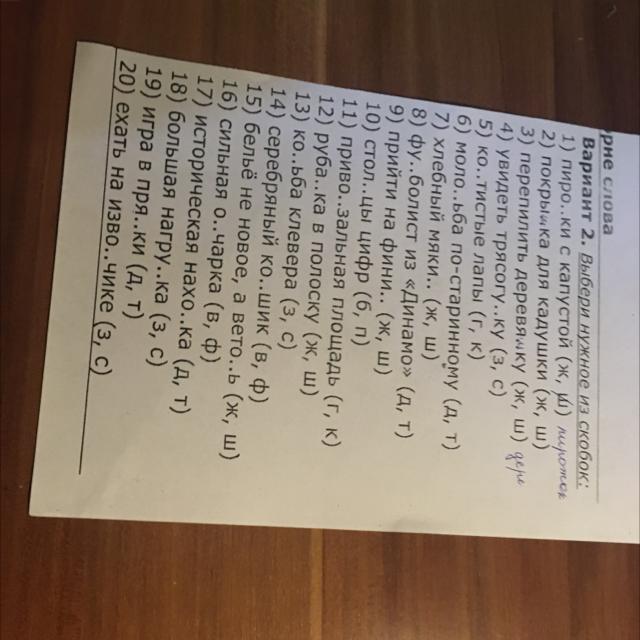 рне слова
Вариант 2. Выбери нужное из скобок:
1) пиро..ки с капустой (ж, ш) пирожок
2) покрышка для кадушки (ж, ш)
3) перепилить деревяшку (ж, ш) дере
4) увидеть трясогу..ку (з, с)
5) ко..тистые лапы (г, к)
6) моло..ьба по-старинному (д, т)
7) хлебный мяки.. (ж, ш)
8) фу..болист из «Динамо» (д, т)
9) прийти на фини.. (ж, ш)
10) стол..цы цифр (б, п)
11) приво..зальная площадь (г, к)
12) руба..ка в полоску (ж, ш)
13) ко..ьба клевера (з, с)
14) серебряный ко..шик (в, ф)
15) бельё не новое, а вето..ь (ж, ш)
16) сильная о..чарка (в, ф)
17) историческая нахо..ка (д, т)
18) большая нагру..ка (з, с)
19) игра в пря..ки (д, т)
20) ехать на изво..чике (з, с)